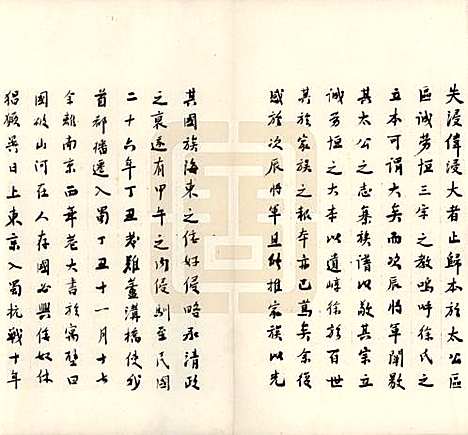 失浸偉浸大者止歸本於太公區
區誠勞恒三宗之教嗚呼徐氏之
立本可謂大矣而次辰將軍闡歇
其太公之志纂族譜以敬其宗立
誠勞恒之大本以道嶂徐族百世
其於家族之報本亦已萬矣余復
感於次辰將軍且能推家族以先
其國族海東之倭奴侵略承清政
之衰遂有甲午之內侵馴至民國
二十六年丁丑發難蘆溝橋使我
首都播遷入蜀丁丑十一月十七
余離南京西年老大書於寓壁曰
國破山河在人存國必興倭奴休
猖厥異日上東京入蜀抗戰十年